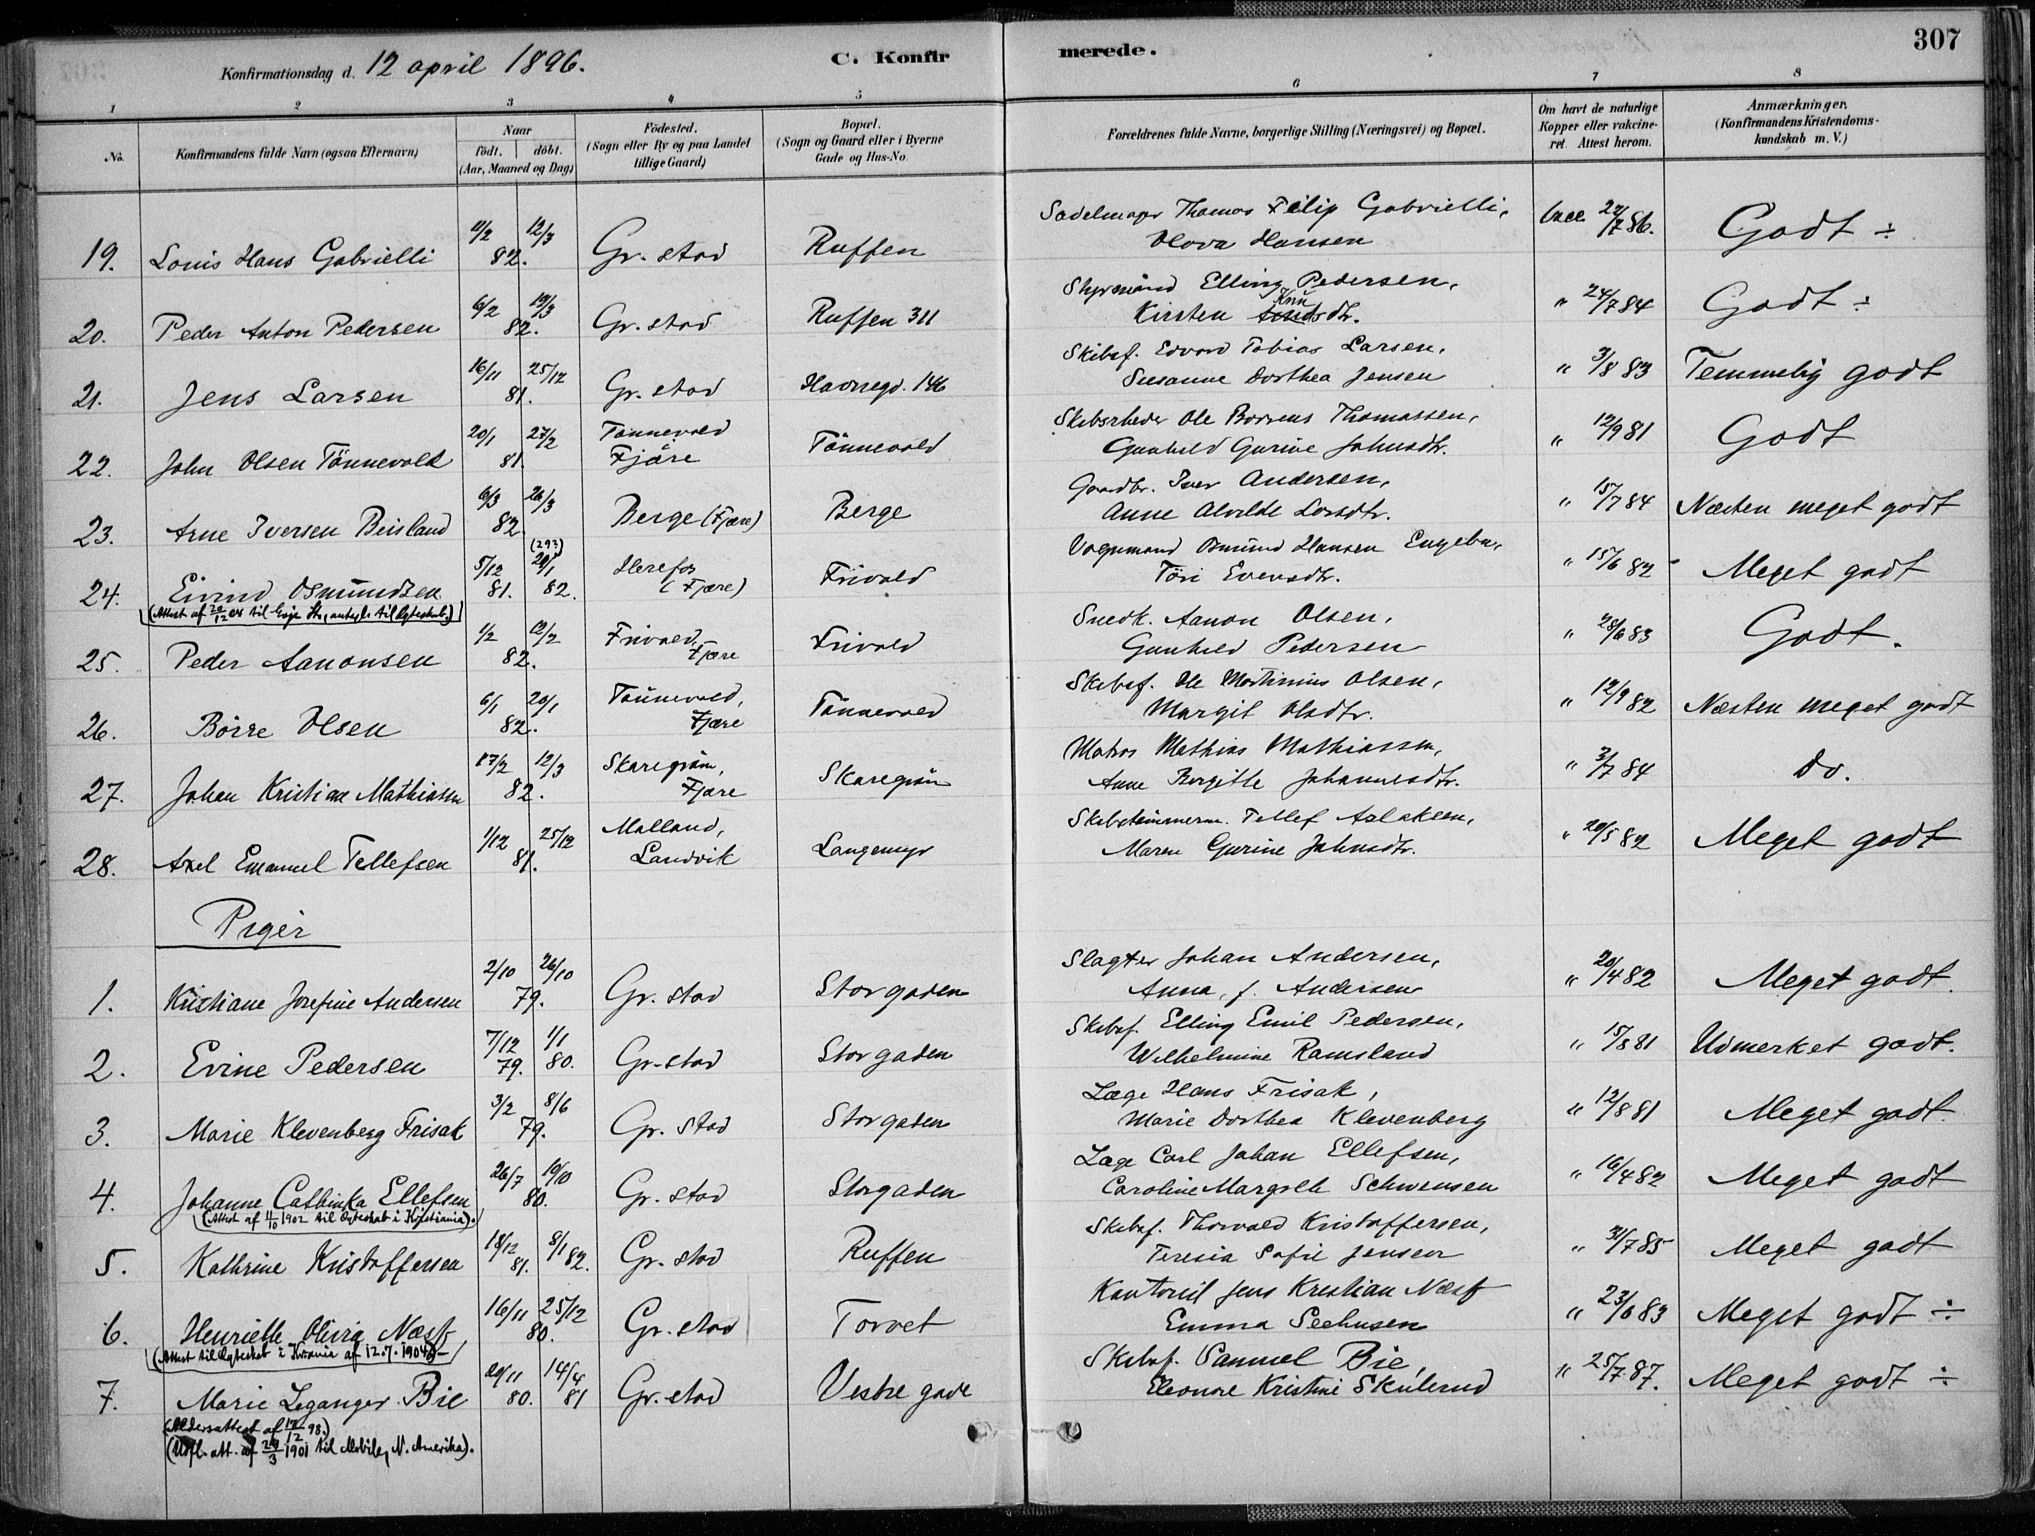 307
Konfirmationsdag d. 12 april 1896. C. Konfirmerede.
1 2 3 4 5 6 7 8
No. Konfirmandens fulde Navn (ogsaa Efternavn) Naar født, døbt. (Aar, Maaned og Dag) Fødested. (Sogn eller By og paa Landet tillige Gaard) Bopæl. (Sogn og Gaard eller i Byerne Gade og Hus-No. Forældrenes fulde Navne, borgerlige Stilling (Næringsvei) og Bopæl. Om havt de naturlige Kopper eller vakcineret. Attest herom. Anmærkninger. (Konfirmandens Kristendomskundskab m. V.)
Thomas Filip Gabrielli,
19. Louis Hans Gabrielli 12/3 82. Gr. stad Ruffen Hansen vacc 27/7 86. Godt ÷
Styrmand Elling Pedersen,
20. Peder Anton Pedersen 6/2 19/3 82. Gr. stad Ruffen 311 Kirsten " 24/7 84 Godt ÷
Skibsf. Edvard Tobias Larsen,
21. Jens Larsen 16/11 25/12 81. Gr. stad Havnegd. 146 Susanne Dorthea Jensen " 3/8 83 Temmelig godt
Skibsrheder Ole Thomassen,
22. John Olsen Tönnevold 20/1 27/2 81. Tönnevold Fjäre Tönnevold Gunhild Gurine Johnsdtr. " 12/9 81 Godt
Gaardbr. Iver Andersen,
23. Arne Iversen Beisland 6/3 26/3 82. Berge (Fjære) Berge Anne Alvilde Larsdtr. " 15/7 84 Næsten meget godt
Osmund Hansen
24. Eivind Osmundsen 5/12 81. (293) 82. Herefos (Fjære) Frivold Töri Evensdtr. " 15/6 82 Meget godt
Snedk. Aanon Olsen,
25. Peder Aanonsen 1/2 12/2 82. Frivold, Fjære Frivold Gunhild Pedersen " 28/6 83 Godt.
Skibsf. Ole Martinius Olsen,
26. Börre Olsen 6/1 20/1 82. Tönnevold, Fjære Tönnevold Margit Olsdtr. " 12/9 82 Næsten meget godt
Matros Mathias Mathiassen,
27. Johan Kristian Mathiasen 17/2 12/3 82. Skaregrön, Fjære Skaregrön Anne Birgitte Johannesdtr. " 3/7 84 do.
Skibstömmerm. Tellef Aslaksen,
28. Axel Emanuel Tellefsen 1/12 25/12 81. Malland, Landvik Langemyr Maren Gurine Johnsdtr. " 20/5 82 Meget godt
Piger
Slagter Johan Andersen,
1. Kristiane Josefine Andersen 2/10 26/10 79. Gr. stad Storgaden Anna, f. Andersen " 20/4 82 Meget godt.
Skibsf. Elling Emil Pedersen,
2. Evine Pedersen 7/12 79. 1/1 80. Gr. stad Storgaden Wilhelmine Ramsland " 15/8 81 Udmerket godt.
Læge Hans Frisak,
3. Marie Klevenberg Frisak 3/2 8/6 79. Gr. Stad Storgaden Marie Dorthea Klevenberg " 12/8 81 Meget godt.
Læge Carl Johan Ellefsen,
4. Johanne Cathinka Ellefsen 26/7 19/10 80. Gr. stad Storgaden Caroline Margrete Schwensen " 16/4 82 Meget godt
(Attest af 11/10 1902 til Egteskab i Kristiania).
Skibsf. Thorvald Kristoffersen,
5. Kathrine Kristoffersen 18/12 81. 8/1 82. Gr. stad Ruffen Teresia Sofie Jensen " 31/7 85 Meget godt
Jens Kristian Næss
6. Henriette Olivia Næss 16/11 25/12 80. Gr. stad Torvet Emma Seehusen " 23/6 83 Meget godt ÷
(Attest til Egteskab i Kr.ania af 12.7.1904
Skibsf. Samuel Bie,
7. Marie Leganger Bie 29/11 80. 14/4 81 Gr. stad Vestre gade Eleonore Kristine Skulerud " 25/7 87. Meget godt ÷
(Aldersattest af 17/12 98.)
(Udfl. att. af 29/3 1901 til Mobile, N. Amerika).